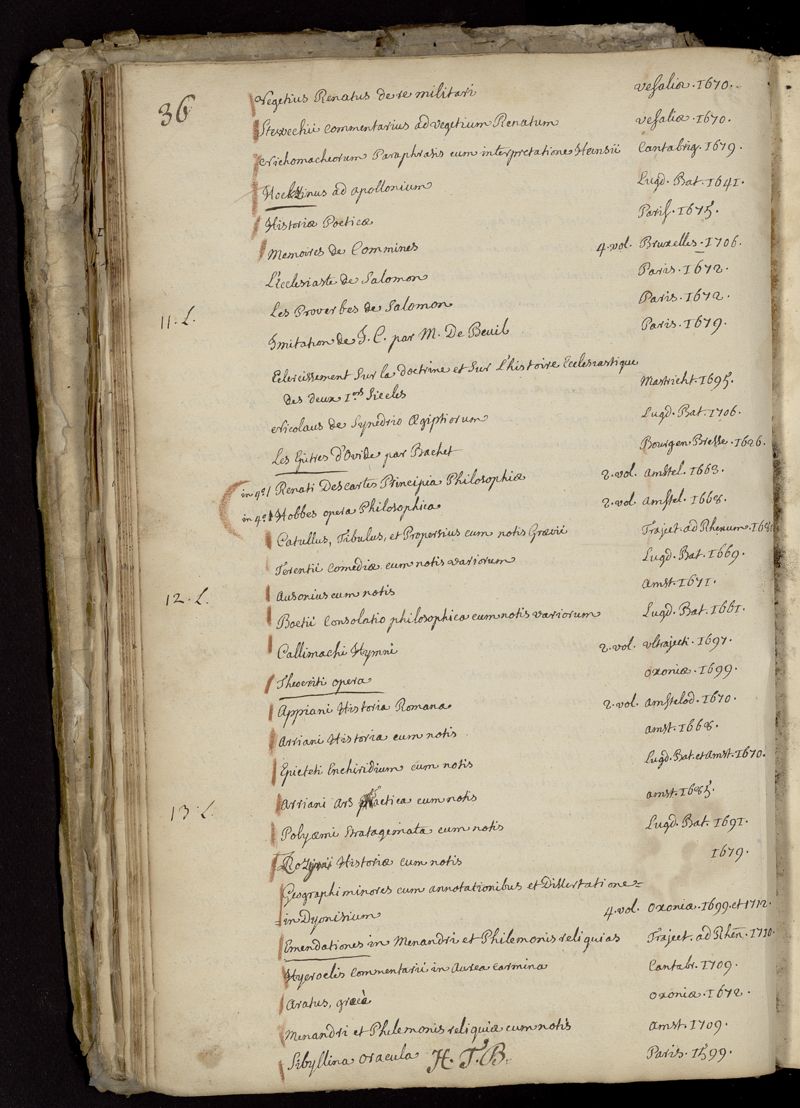 36
Vegetius Renatus de re militari Vesaliæ. 1670.
Stewechii commentarius ad vegetium Renatum vesaliæ. 1670.
Nichomacheorum Paraphrasis cum interpretatione Heinsii Cantabrig. 1679.
Hoelzlinus ad apollonium Lugd. Bat. 1641.
Historiæ Poeticæ Paris. 1675.
Memoires de Commines 4. vol. Bruxelles. 1706.
L'Ecclesiaste de Salomon Paris. 1672.
11. L. Les Proverbes de Salomon Paris. 1672.
Imitation de J. C. par M. De Beuil Paris. 1679.
Eclercissement Sur la doctrine et Sur l'histoire Ecclesiastique
des deux Iers Siecles Mastricht. 1695.
Nicolaus de Synedrio Ægiptiorum Lugd. Bat. 1706.
Les Epitres d'Ovide par Bachet Bourgen Bresse. 1626.
in 4º. Renati Descartes Principia Philosophiæ 2. vol. amstel. 1663.
in 4º. Hobbes opera Philosophica 2. vol. amstel. 1668.
Catullus, Tibulus, et Propersius cum notis Grævii Traject. ad Rhenum. 1680
Terentii comediæ cum notis variorum Lugd. Bat. 1669.
12. L. Ausonius cum notis amst. 1671.
Boetii Consolatio philosophica cum notis variorum Lugd. Bat. 1661.
Callimachi Hymni 2. vol. ultrajecti. 1697.
Theocriti opera oxoniæ. 1699.
Appiani Historia Romana 2. vol. amstelod. 1670.
Arriani Historia cum notis amst. 1668.
Epicteti Enchiridium cum notis Lugd. Bat. et amst. 1670.
13. L. Arriani Ars tactica cum notis amst. 1683.
Polyæmi Stratagemata cum notis Lugd. Bat. 1691.
Zozimi Historiæ cum notis 1679.
Geographi minores cum annotationibus et Dissertatione
in Dyonisium 4. vol. oxoniæ. 1699. et 1712.
Emendationes in Menandri et Philemonis reliquias Traject. ad Rhen. 1710.
Hyeroclis commentarii in Aurea carmina Cantabr. 1709.
Aratus, græcè oxoniæ. 1672.
Menandri et Philemonis reliquiæ cum notis amst. 1709.
Sibyllina oracula H. T. B. Paris. 1599.